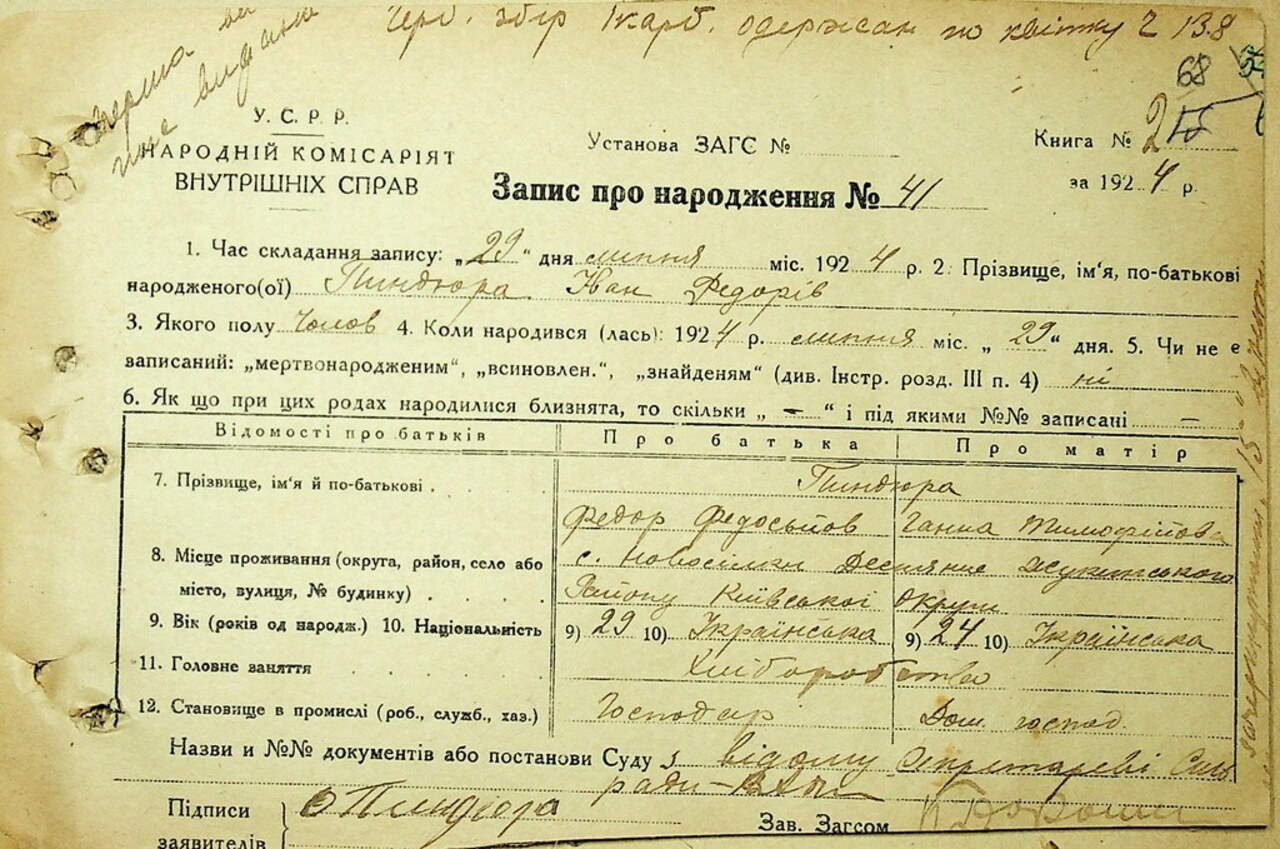 Герб. збір 1 карб. одержан по квітку 2138
68
У.С.Р.Р.
НАРОДНІЙ КОМІСАРІЯТ
ВНУТРІШНІХ СПРАВ
Установа ЗАГС №
Книга № 2
за 1924 р.
Запис про народження № 41
1. Час складання запису: „29" дня липня міс. 1924 р. 2. Прізвище, ім'я, по-батькові
народженого(ої) Пиндюра Іван Федорів
3. Якого полу Чолов 4. Коли народився (лась): 1924 р. липня міс. „29" дня. 5. Чи не є
записаний: „мертвонародженим", „всиновлен.", „знайденям" (див. Інстр. розд. III п. 4) ні
6. Як що при цих родах народилися близнята, то скільки „ — " і під якими №№ записані —
Відомості про батьків Про батька Про матір
7. Прізвище, ім'я й по-батькові . Пиндюра
Федор Федосьйов Ганна Тимофійова
8. Місце проживання (округа, район, село або с. Новосілки Десняние Жукинського
місто, вулиця, № будинку) . . . Району Київської округи
9. Вік (років од народж.) 10. Національність 9) 29 10) Українська 9) 24 10) Українська
11. Головне заняття . . . . Хліборобство
12. Становище в промислі (роб., служб., хаз.) Господар Дом. господ.
Назви и №№ документів або постанови Суду відому Секретареві Сіль
ради
Підписи Пиндюра
заявителів
Зав. Загсом